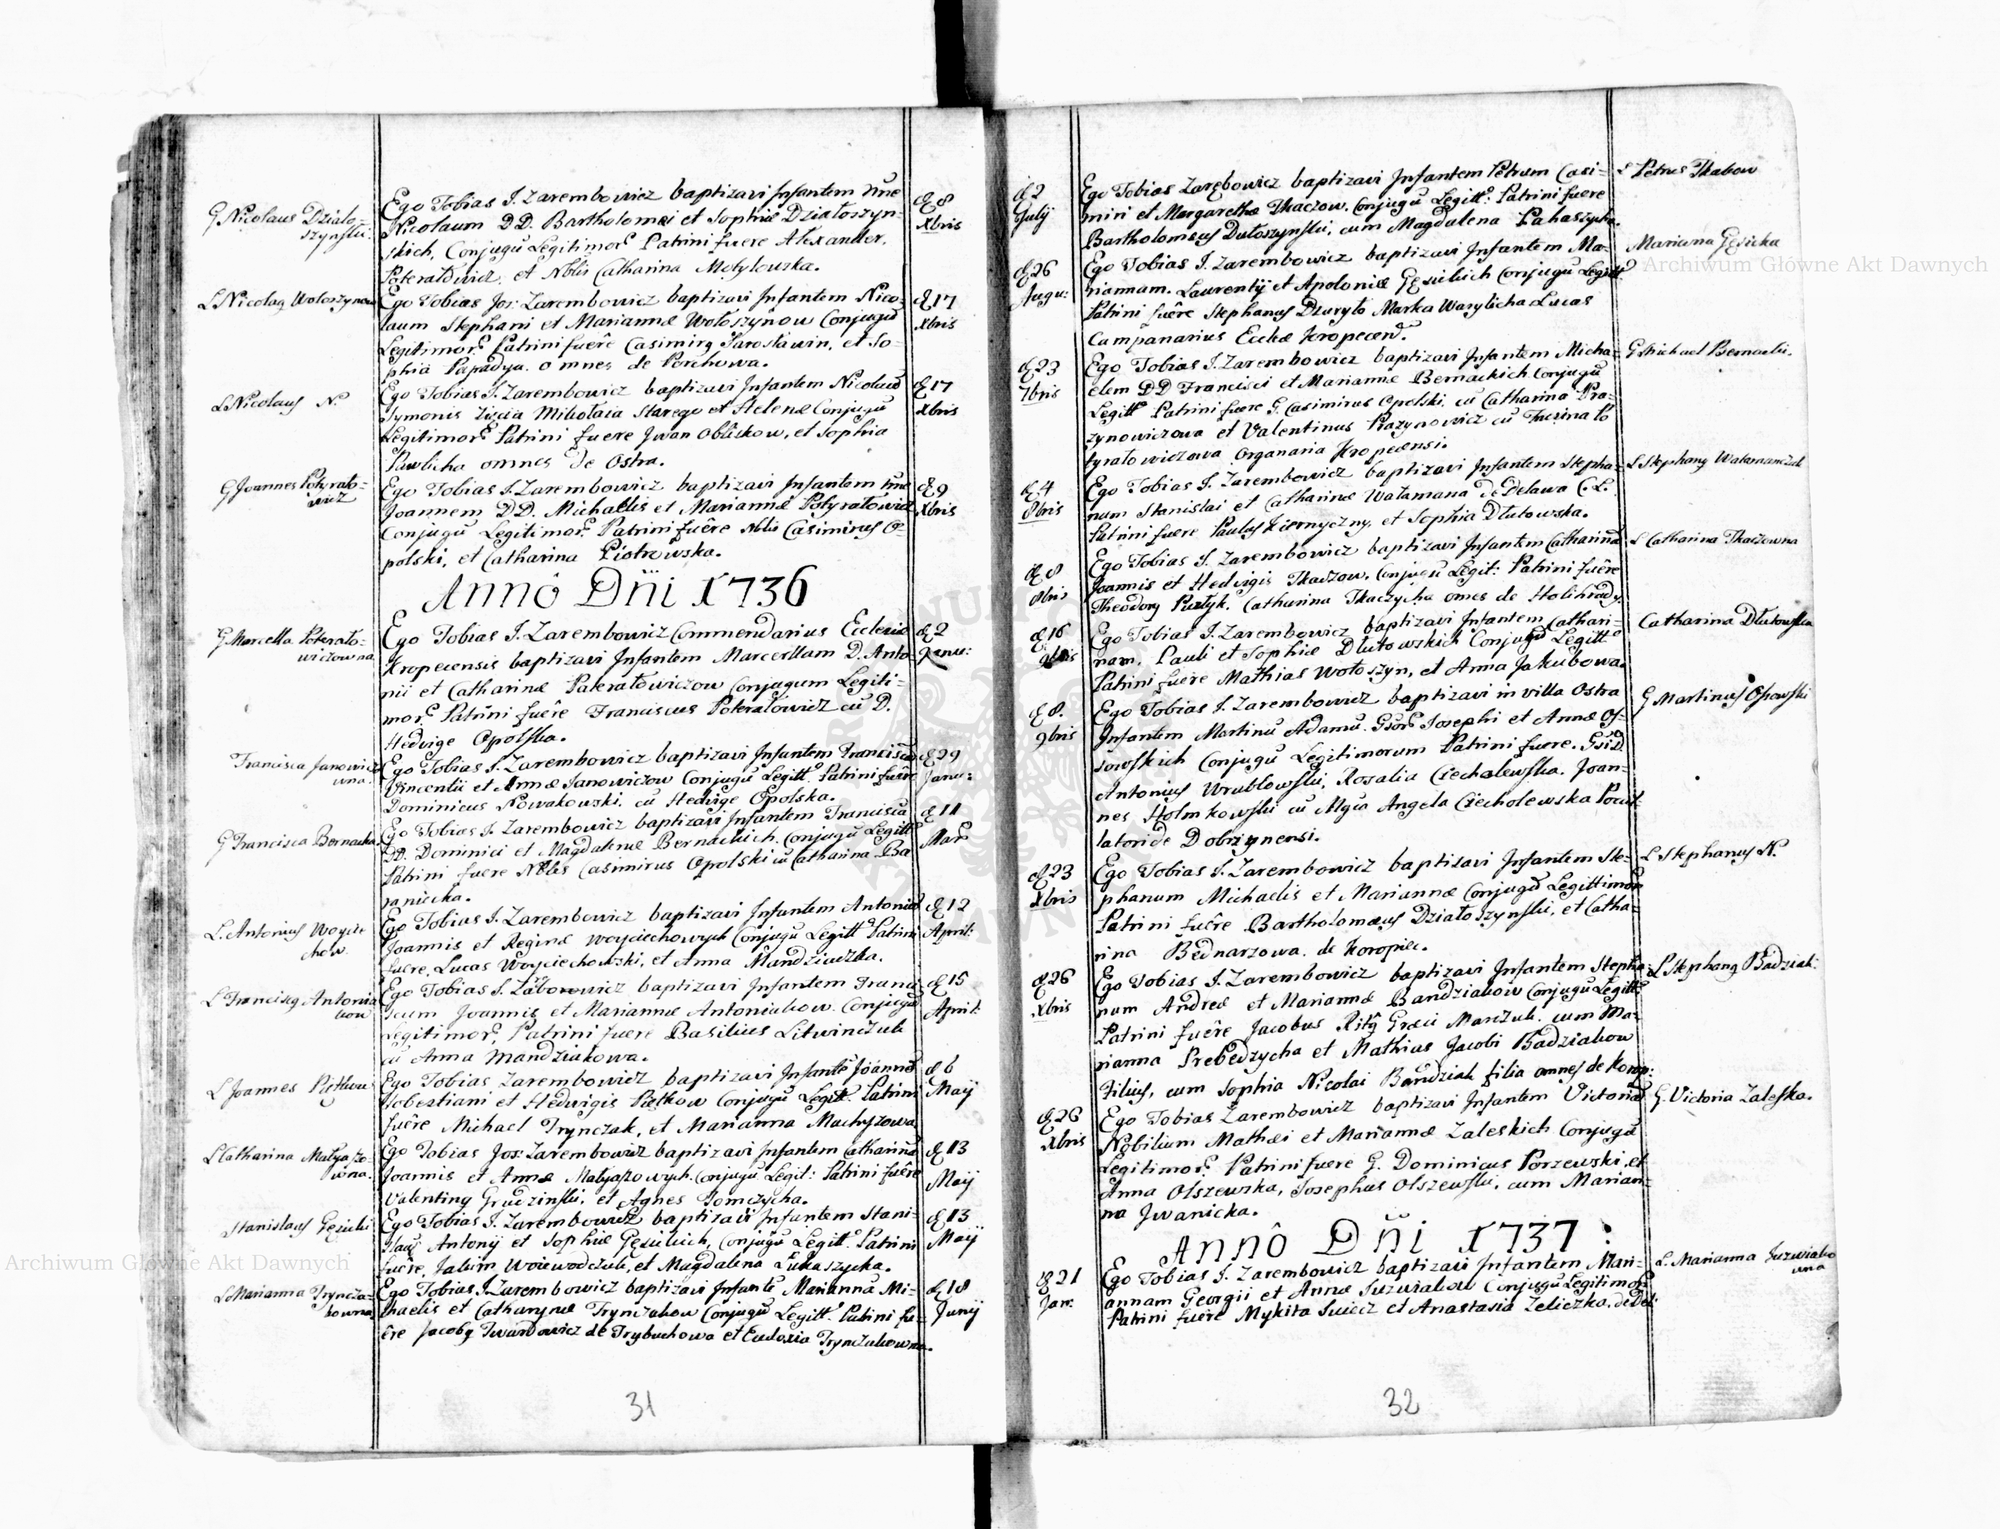 G Nicolaus Działo-
szynski.
Ego Tobias I. Zarembowicz baptizavi Infantem nne
Nicolaum DD. Bartholomæi et Sophiæ Działoszyn-
skich, Conjugũ Legitimor. Patrini fuere Alexander
Poteratowicz, et Nblis Catharina Motylowska.
d 8
Xbris
L Nicolaq Wołoszynow
Ego Tobias Jos: Zarembowicz baptizavi Infantem Nico-
laum Stephani et Mariannæ Wołoszynow Conjugũ
Legitimor. Patrini fuêre Casimirq Jarosławin, et So-
phia Papadya. omnes de Porchowa.
d 17
Xbris
L Nicolaus N.
Ego Tobias I. Zarembowicz baptizavi Infantem Nicolaũ
Symonis Zięcia Mikołaia Starego et Helenæ Conjugũ
Legitimor. Patrini fuere Jwan Obliskow, et Sophia
Pawlicha omnes de Ostra.
d 17
Xbris
G Joannes Potyrato-
wicz
Ego Tobias I. Zarembowicz baptizavi Infantem nne
Joannem DD. Michaelis et Mariannæ Potyratowicz
Conjugũ Legitimor. Patrini fuêre Nblis Casimirus O-
polski, et Catharina Piotrowska.
d 9
Xbris
Annô Dñi 1736
G Marcella Poterato-
wiczowna
Ego Tobias I. Zarembowicz Commendarius Ecclesiæ
Kropecensis baptizavi Infantem Marcellam D. Anto
nii et Catharinæ Pateratowiczow Conjugum Legiti-
mor. Patrini fuêre Franciscus Poteratowicz cũ D.
Hedvige Opolska.
d 2
Janu:
Francisca Janowicz
wna.
Ego Tobias I. Zarembowicz baptizavi Infantem Franciscã
Vincentii et Annæ Janowiczow Conjugũ Legitt. Patrini fuêre
Dominicus Nowakowski, cũ Hedvige Opolska.
d 29
Janu:
G Francisca Bernacka
Ego Tobias I. Zarembowicz baptizavi Infantem Franciscã
DD. Dominici et Magdalenæ Bernackich. Conjugũ Legitt
Patrini fuere Nbles Casimirus Opolski cũ Catharina Ba
ranicka.
d 11
Mar
L. Antonius Woycie
chow
Ego Tobias I. Zarembowicz baptizavi Infantem Antoniũ
Joannis et Reginæ Woyciechowych Conjugũ Legitt Patrini
fuêre, Lucas Woyciechowski, et Anna Mandziuzka.
d 12
April:
L Franciscq Antonia
kow
Ego Tobias I. Zabowowicz baptizavi Infantem Franci
scum Joannis et Mariannæ Antoniakow. Conjugũ
Legitimor. Patrini fuere Basilius Litwinczuk
cũ Anna Mandziukowa.
d 15
April:
L Joannes Piętkow
Ego Tobias Zarembowicz baptizavi Infante Joannẽ
Sobestiani et Hedwigis Piętkow Conjugũ Legitt. Patrini
fuêre Michael Trynczak, et Marianna Machyzowa
d 6
Maij
L Catharina Matyaszo-
wna.
Ego Tobias Jos: Zarembowicz baptizavi Infantem Catharinã
Joannis et Annæ Matyaszowych. Conjugũ Legit: Patrini fuêre
Valentinq Grudzinski, et Agnes Tomczycha.
d 13
Maij
Stanislaus Gęsicki
Ego Tobias I. Zarembowicz baptizavi Infantem Stani-
slaũ Antonij et Sophiæ Gęsickich, Conjugũ Legitt. Patrini
fuêre, Jakim Woiewodczuk, et Magdalena Łukaszycha.
d 13
Maij
L Marianna Trynczа-
kowna
Ego Tobias I. Zarembowicz baptizavi Infante Mariannã Mi-
chaelis et Catharynæ Trynczakow Conjugũ Legitt. Patrini fu-
êre Jacobq Twardowicz de Trybuchowa et Eudoxia Trynczukowna.
d 18
Junij
31
d 2
Julij
Ego Tobias Zarębowicz baptizavi Infantem Petrum Casi-
miri et Margarethæ Tkaczow. Conjugũ Legitt. Patrini fuere
Bartholomeus Dutoszynski, cum Magdalena Pahaszycha.
L Petrus Tkabow
d 26
Augu:
Ego Tobias I. Zarembowicz baptizavi Infantem Ma-
riannam. Laurentij et Apoloniæ Gęsickich Conjugũ Legitt
Patrini fuêre Stephanus Dzuryło Marka Wasylicha Lucas
Campanarius Eccłæ Kropecen.
Marianna Gęsicka
d 23
7bris
Ego Tobias I. Zarembowicz baptizavi Infantem Micha-
elem DD Francisci et Mariannæ Bernackich Conjugũ
Legitt Patrini fuere G. Casimirus Opolski, cũ Catharina Pra-
zynowiczowa et Valentinus Prazynowicz cũ Turina Po
tyratowiczowa Organaria Kropecensi.
G Michael Bernacki.
d 4
8bris
Ego Tobias I. Zarembowicz baptizavi Infantem Stepha-
num Stanislai et Catharinæ Watamana de Delawa C. L.
Patrini fuere Paulus Kiernyczny, et Sophia Dłutowska.
L Stephanq Watamanczuk
d 8
8bris
Ego Tobias I. Zarembowicz baptizavi Infantem Catharinã
Joannis et Hedvigis Tkaczow. Conjugũ Legit: Patrini fuêre
Theodorq Puztyk. Catharina Tkaczycha omes de Holihrady.
L Catharina Tkaczowna
d 16
9bris
Ego Tobias I. Zarembowicz baptizavi Infantem Cathari-
nam. Pauli et Sophiæ Dłutowskich Conjugũ Legitt
Patrini fuêre Mathias Wołoszyn, et Anna Jakubowa.
Catharina Dłutowska
d 8.
9bris
Ego Tobias I. Zarembowicz baptizavi in villa Ostra
Infantem Martinũ Adamũ. Gsor. Josephi et Annæ Os-
sowskich Conjugũ Legitimorum Patrini fuere. Gsi D.
Antonius Wrublowski, Rosalia Ciechalewska. Joan-
nes Holmkowski cũ Mgia Angela Ciecholewska Pocil-
latoride Dobrzynensi.
G Martinus Osowski
d 23
Xbris
Ego Tobias I. Zarembowicz baptizavi Infantem Ste-
phanum Michaelis et Mariannæ Conjugũ Legittimor
Patrini fuêre Bartholomæus Działoszynski, et Catha-
rina Bednarzowa. de Koropiec.
L Stephanus N.
d 26
Xbris
Ego Tobias I. Zarembowicz baptizavi Infantem Stepha-
num Andreæ et Mariannæ Bandziakow Conjugũ Legitt
Patrini fuêre Jacobus Ritq Græci Marczuk. cum Ma-
rianna Prebedzycha et Mathias Jacobi Badziakow
Filius, cum Sophia Nicolai Bandziak filia omnes de Korop:
L Stephanq Badziak:
d 26
Xbris
Ego Tobias Zarembowicz baptizavi Infantem Victoriã
Nobilium Mathæi et Mariannæ Zaleskich Conjugũ
Legitimor. Patrini fuere G. Dominicus Porzewski, et
Anna Olszewska, Josephus Olszewski, cum Marian-
na Jwanicka.
G. Victoria Zaleska.
Annô Dñi 1737
d 21
Jan:
Ego Tobias I. Zarembowicz baptizavi Infantem Mari-
annam Georgii et Annæ Suzwiakow Conjugũ Legitimor
Patrini fuere Mykita Suiecz et Anastasia Zeliczka. de Del:
L. Marianna Suzwiako
wna
32
Archiwum Główne Akt Dawnych
Archiwum Główne Akt Dawnych